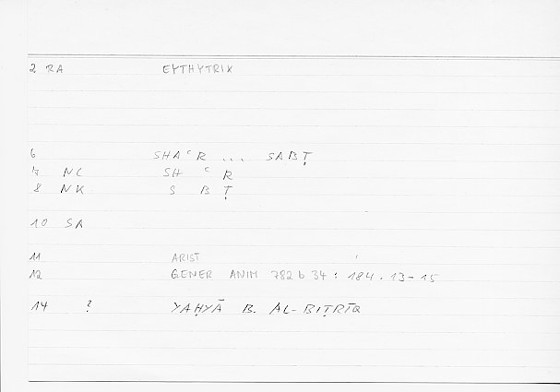 2 RA EYTHYTRIK
6 SHAʿR ... SABṬ
7 NC SH ʿ R
8 NK S B Ṭ
10 SA
11 ARIST
12 GENER ANIM 782 b 34 : 184. 13-15
14 ? YAḤYĀ B. AL-BIṬRĪQ